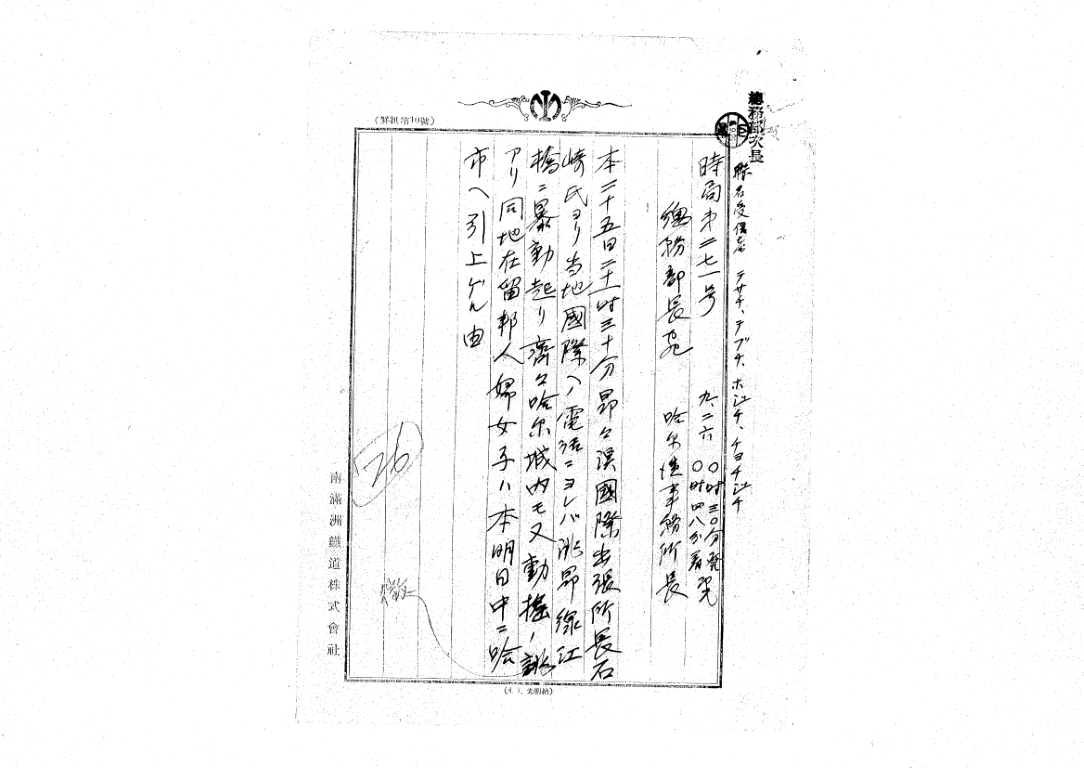 總務部次長
聯名受信者 テサチ、テブチ、ホンチ、チヨチンチ
時局第二七一号
九、二六 〇時三〇分発
〇時四八分着
總務部長宛 哈尔濱事務所長
本二十五日二十一時三十分昂々溪國際出張所長石
崎氏ヨリ当地國際ヘノ電話ニヨレバ洮昂線江
橋ニ暴動起リ齊々哈尔城内モ又動揺ノ兆
アリ同地在留邦人婦女子ハ本明日中ニ哈
市ヘ引上ゲル由
26
南滿洲鐵道株式會社
(罫紙第10號)